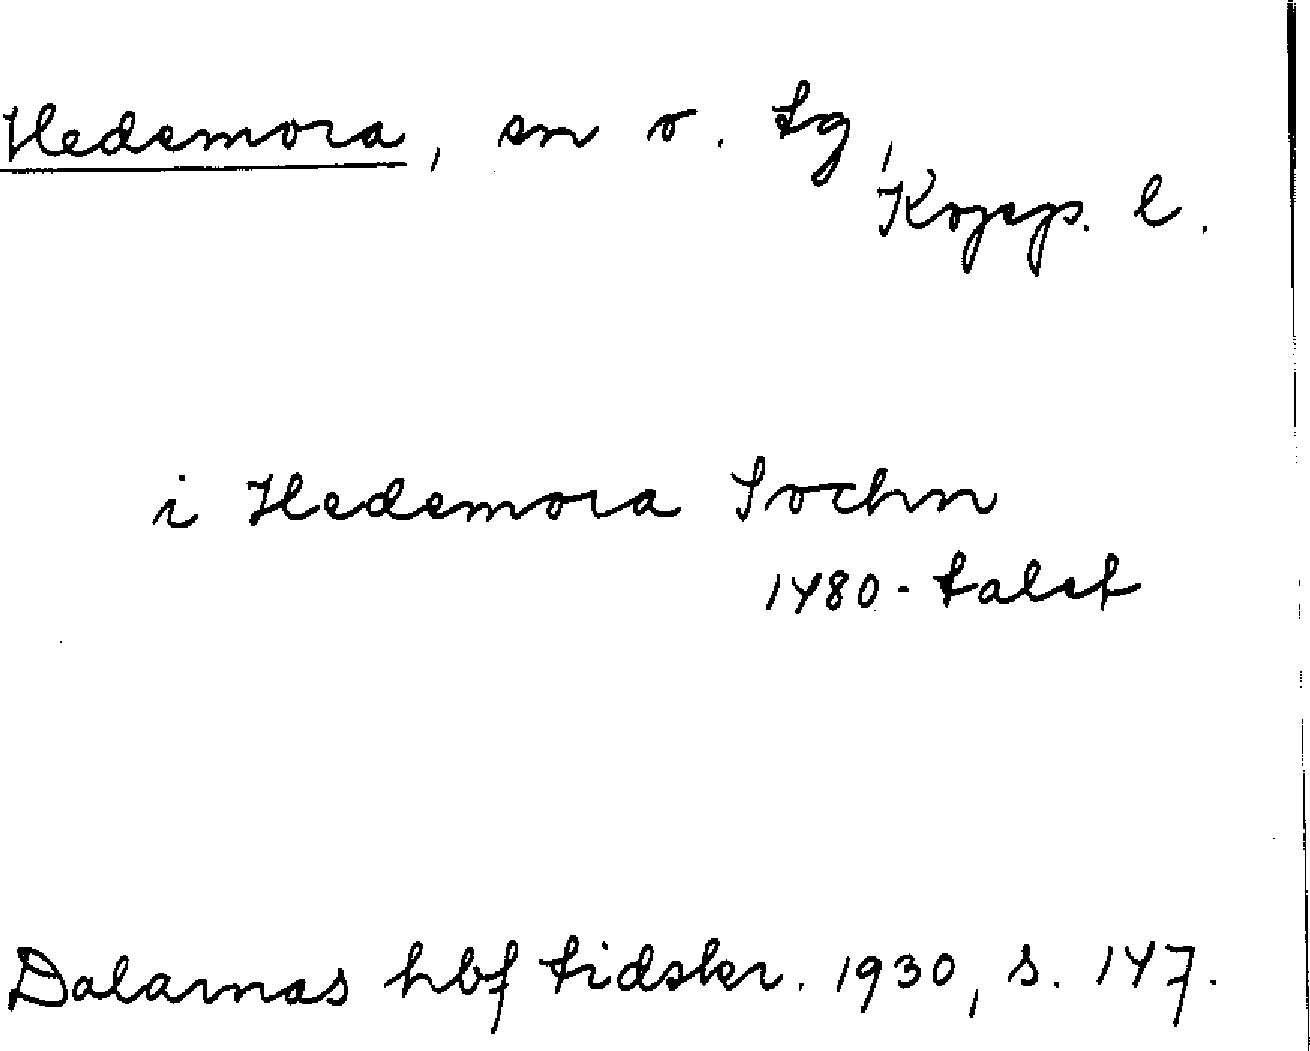 Hedemora, sn o. tg, Kopp. l.
i Hedemora Sochn
1480-talet
Dalarnas hbf tidskr. 1930, s. 147.